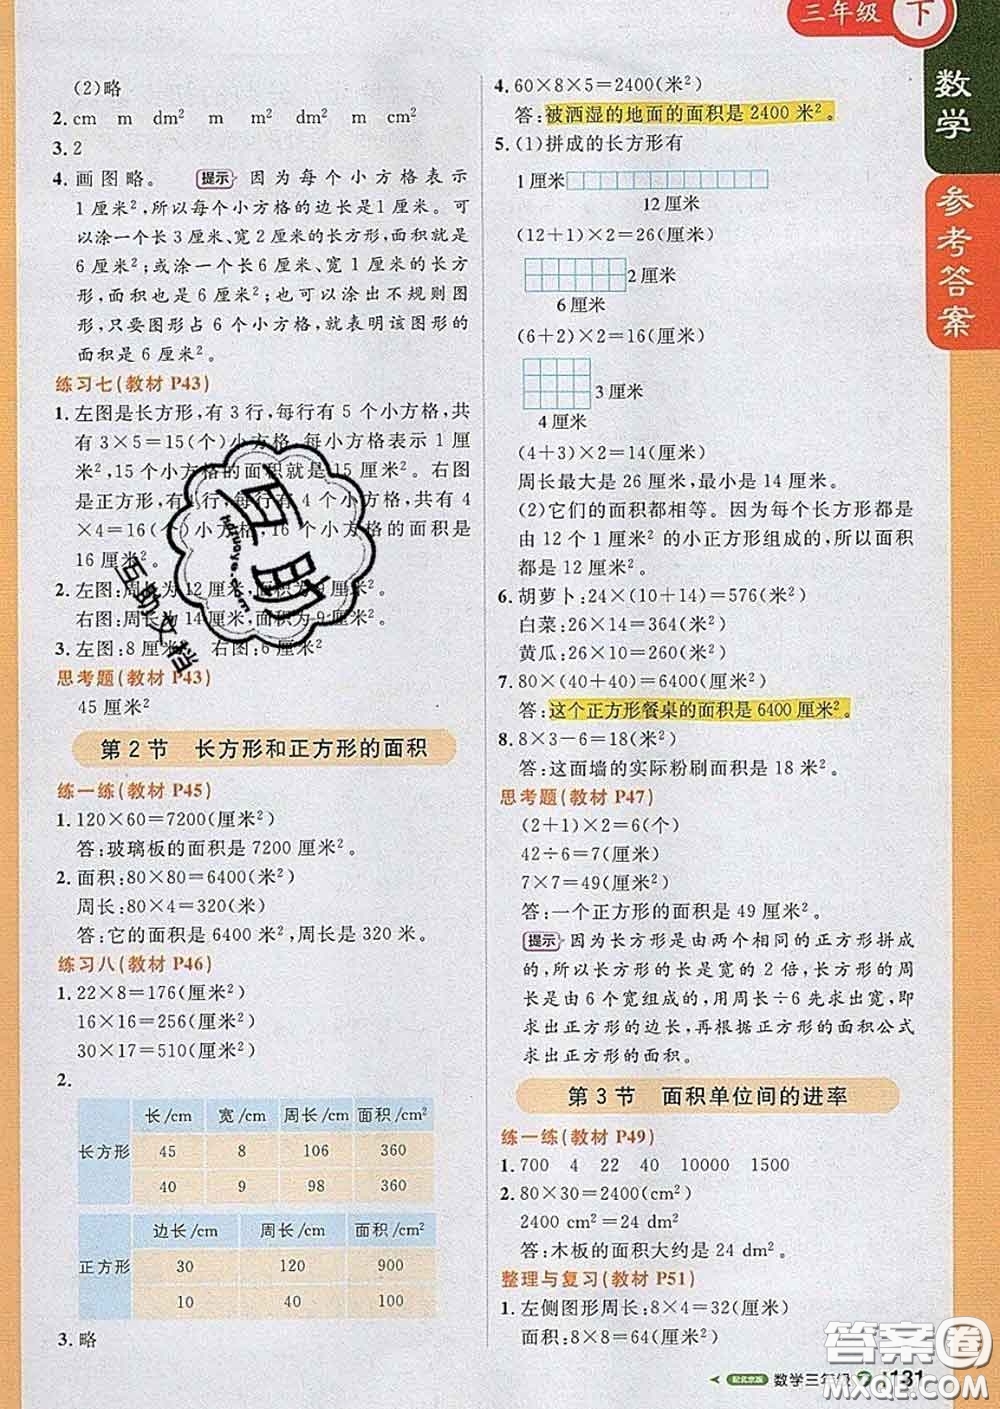 三年级 下
数学
参考答案
(2)略
2. cm m dm² m m² dm² m cm²
3. 2
4. 画图略。 提示 因为每个小方格表示
1厘米²,所以每个小方格的边长是1厘米。可
以涂一个长3厘米、宽2厘米的长方形,面积就是
6厘米²;或涂一个长6厘米、宽1厘米的长方
形,面积也是6厘米²;也可以涂出不规则图
形,只要图形占6个小方格,就表明该图形的
面积是6厘米²。
练习七(教材 P43)
1. 左图是长方形,有3行,每行有5个小方格,共
有3×5=15(个)小方格,每小方格表示1厘
米²,15个小方格的面积就是15厘米²。右图
是正方形,有4行,每行有4个小方格,共有4
×4=16(个)小方格,16个小方格的面积是
16厘米²。
2. 左图:周长为12厘米,面积为9厘米²
右图:周长为14厘米,面积为9厘米²
3. 左图:8厘米² 右图:6厘米²
思考题(教材 P43)
45厘米²
第2节 长方形和正方形的面积
练一练(教材 P45)
1. 120×60=7200(厘米²)
答:玻璃板的面积是7200厘米²。
2. 面积:80×80=6400(米²)
周长:80×4=320(米)
答:它的面积是6400米²,周长是320米。
练习八(教材 P46)
1. 22×8=176(厘米²)
16×16=256(厘米²)
30×17=510(厘米²)
2.
长/cm 宽/cm 周长/cm 面积/cm²
长方形 45 8 106 360
40 9 98 360
边长/cm 周长/cm 面积/cm²
正方形 30 120 900
10 40 100
3. 略
4. 60×8×5=2400(米²)
答:被洒湿的地面的面积是2400米²。
5. (1)拼成的长方形有
1厘米
12厘米
(12+1)×2=26(厘米)
2厘米
6厘米
(6+2)×2=16(厘米)
3厘米
4厘米
(4+3)×2=14(厘米)
周长最大是26厘米,最小是14厘米。
(2)它们的面积都相等。因为每个长方形都是
由12个1厘米²的小正方形组成的,所以面积
都是12厘米²。
6. 胡萝卜:24×(10+14)=576(米²)
白菜:26×14=364(米²)
黄瓜:26×10=260(米²)
7. 80×(40+40)=6400(厘米²)
答:这个正方形餐桌的面积是6400厘米²。
8. 8×3-6=18(米²)
答:这面墙的实际粉刷面积是18米²。
思考题(教材 P47)
(2+1)×2=6(个)
42÷6=7(厘米)
7×7=49(厘米²)
答:一个正方形的面积是49厘米²。
提示 因为长方形是由两个相同的正方形拼成
的,所以长方形的长是宽的2倍,长方形的周
长是由6个宽组成的,用周长÷6先求出宽,即
求出正方形的边长,再根据正方形的面积公式
求出正方形的面积。
第3节 面积单位间的进率
练一练(教材 P49)
1. 700 4 22 40 10000 1500
2. 80×30=2400(cm²)
2400 cm²=24 dm²
答:木板的面积大约是24 dm²。
整理与复习(教材 P51)
1. 左侧图形周长:8×4=32(厘米)
面积:8×8=64(厘米²)
配北京版 数学三年级 下 131
互助
huzuoye.com
互助文档
答案圈
MXQE.COM